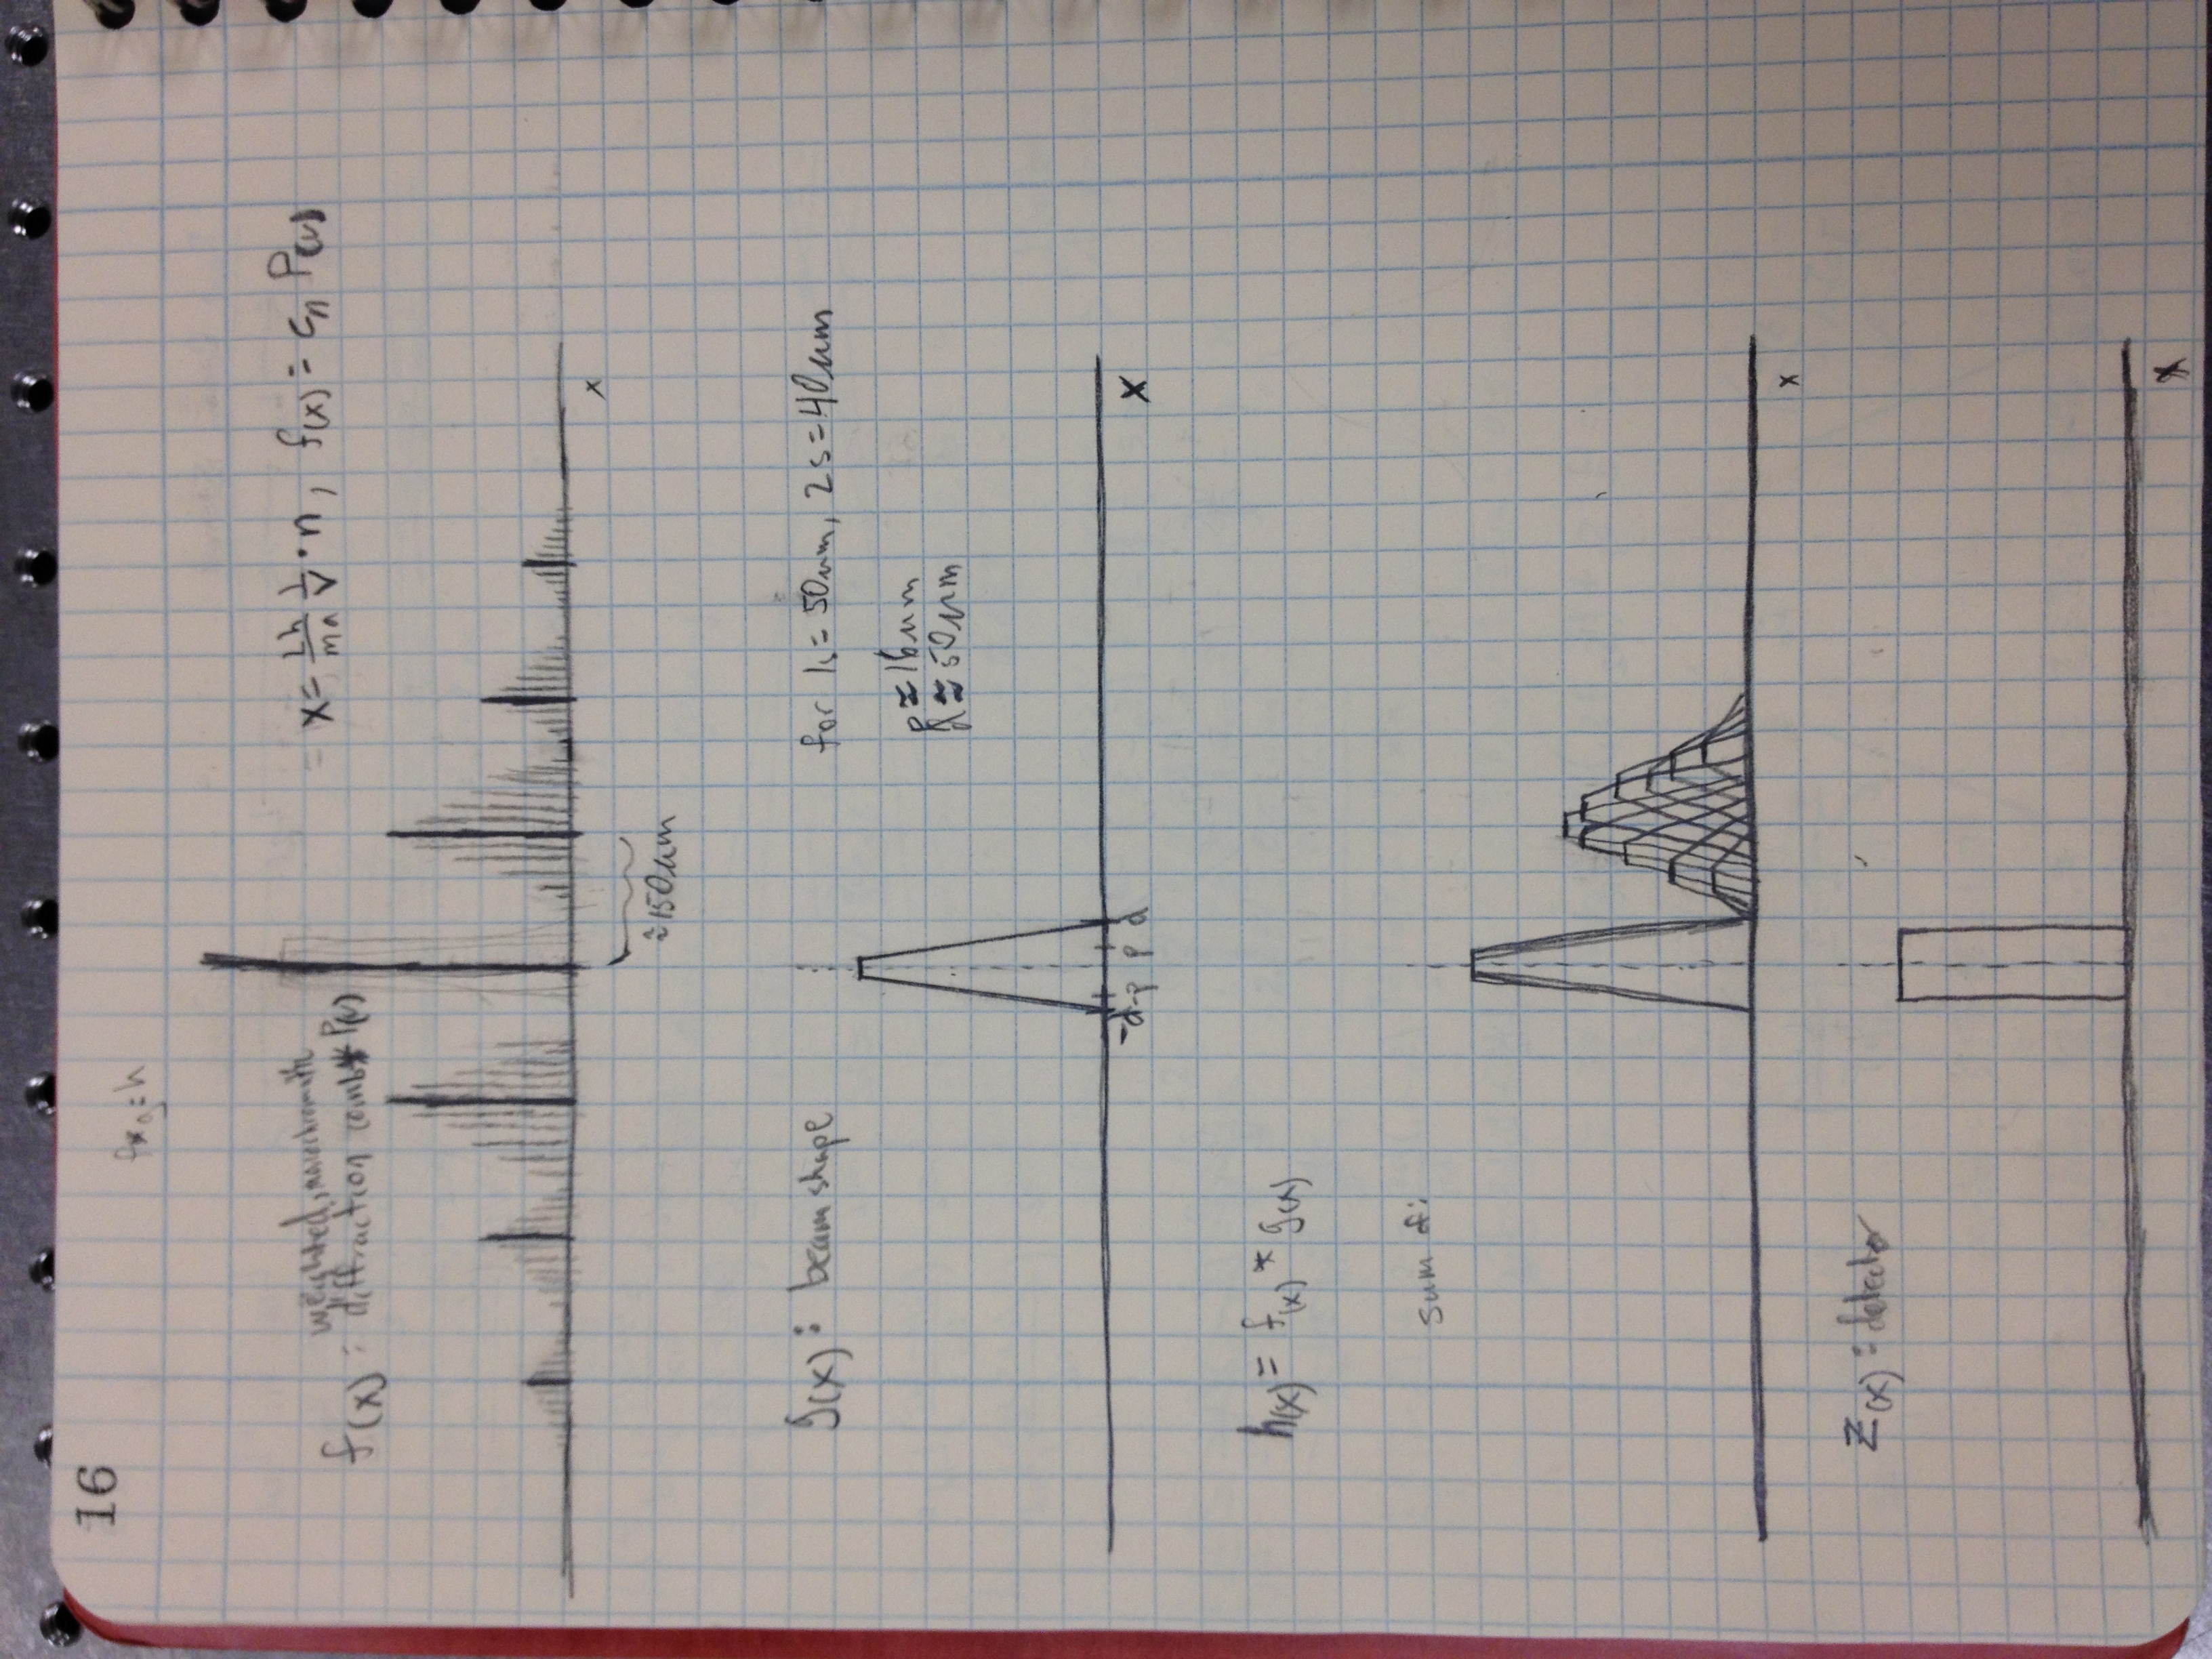 16
f*g=h
weighted, monochromatic
f(x) : diffraction comb * P(v)
= x = Lh/mλ 1/v · n , f(x) = cn P(v)
≈150um
x
g(x) : beam shape
for 1s = 50um, 2s = 40um
p ≈ 16um
d ≈ 50um
-d -p p d
x
h(x) = f(x) * g(x)
sum di
x
z(x) : detector
x